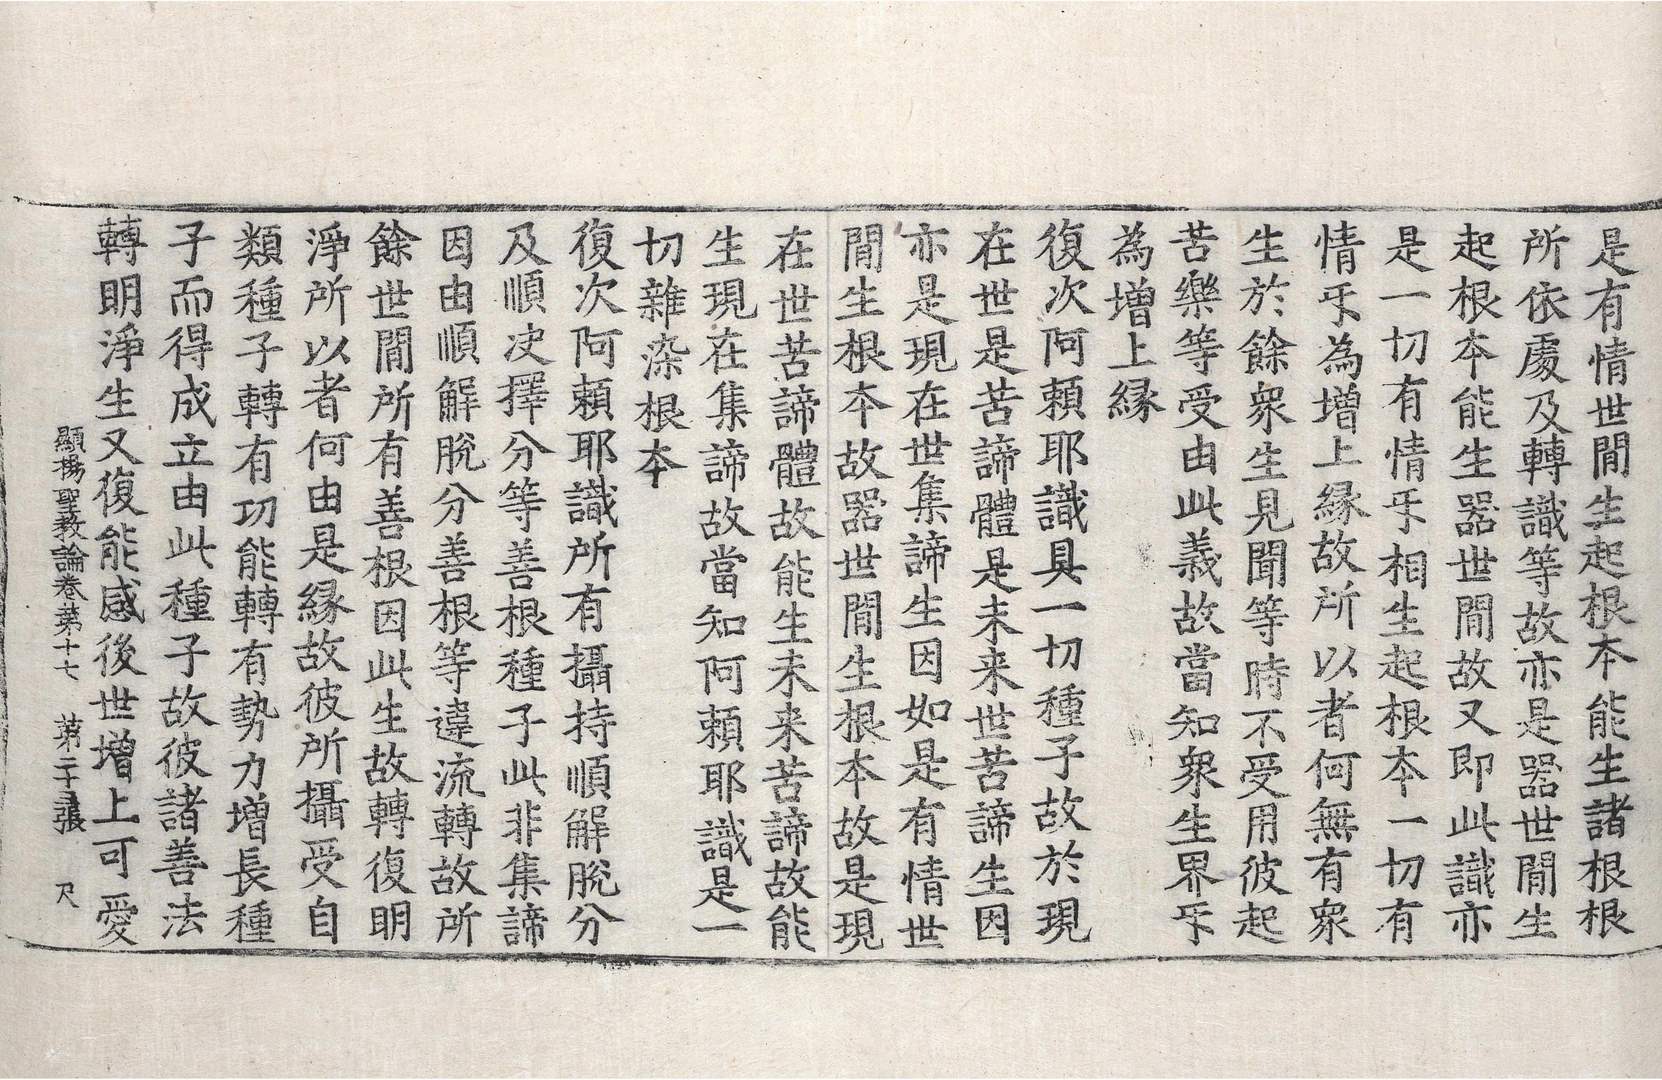 是有情世閒生起根本能生諸根根
所依處及轉識等故亦是器世閒生
起根本能生器世閒故又即此識亦
是一切有情㸦相生起根本一切有
情㸦為增上縁故所以者何無有衆
生於餘衆生見聞等時不受用彼起
苦樂等受由此義故當知衆生界㸦
為增上縁
復次阿頼耶識具一切種子故於現
在世是苦諦體是未来世苦諦生因
亦是現在世集諦生因如是有情世
閒生根本故器世閒生根本故是現
在世苦諦體故能生未来苦諦故能
生現在集諦故當知阿頼耶識是一
切雜染根本
復次阿頼耶識所有攝持順解脫分
及順决擇分等善根種子此非集諦
因由順解脫分善根等違流轉故所
餘世閒所有善根因此生故轉復明
淨所以者何由是縁故彼所攝受自
類種子轉有功能轉有勢力增長種
子而得成立由此種子故彼諸善法
轉明淨生又復能感後世增上可愛
顯揚聖教論卷苐十七 苐二十三張 尺